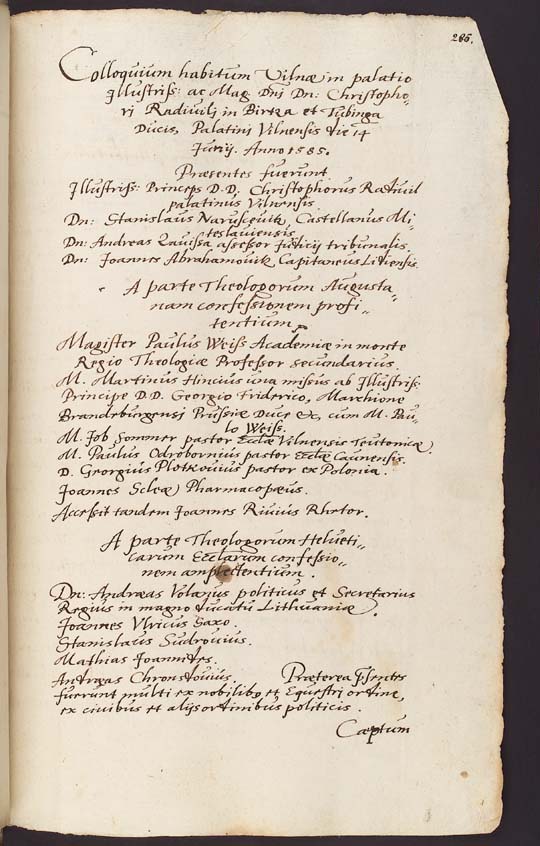 286.
Colloquium habitum Vilnæ in palatio
Illustriss: ac Mag. Dni Dn: Christopho-
ri Radivilj in Birza et Dubinga
Ducis, Palatini Vilnensis die 14
Junij. Anno 1585.
Præsentes fuerunt.
Illustriss: Princeps D.D. Christophorus Radivil
palatinus Vilnensis
Dn: Stanislaus Naruscevitz Castellanus Mi-
tislaviensis
Dn: Andreas Zavissa assessor Judicij tribunalis.
Dn: Joannes Abrahamovitz Capitaneus Lidensis.
A parte Theologorum Augusta-
nam confessionem profi-
tentium
Magister Paulus Weiss Academiæ in monte
Regio Theologiæ Professor secundarius
M. Martinus Hincius una missus ab Illustriss:
Principe D.D. Georgio Friderico, Marchione
Brandeburgensi Prussiæ Duce &c, cum M. Pau-
lo Weiss.
M. Job Sommer pastor Ecclæ Vilnensis Teutonicæ.
M. Paulus Odrobornius pastor Ecclæ Caunensis.
D. Georgius Plotkovius pastor ex Polonia.
Joannes Scleæ Pharmacopæus.
Accessit tandem Joannes Rivius Rhetor.
A parte Theologorum Helveti-
carum Ecclarum confessio-
nem amplectentium.
Dn: Andræas Volanus politicus et Secretarius
Regius in magno ducatu Lithuaniæ.
Joannes Vlricus Saxo.
Stanislaus Sudrovius.
Mathias Joannides.
Andreas Chronstovius. Præterea psentes
fuerunt multi ex nobilibo et Equestri ordine,
ex civibus et alijs ordinibus politicis.
Cæptum